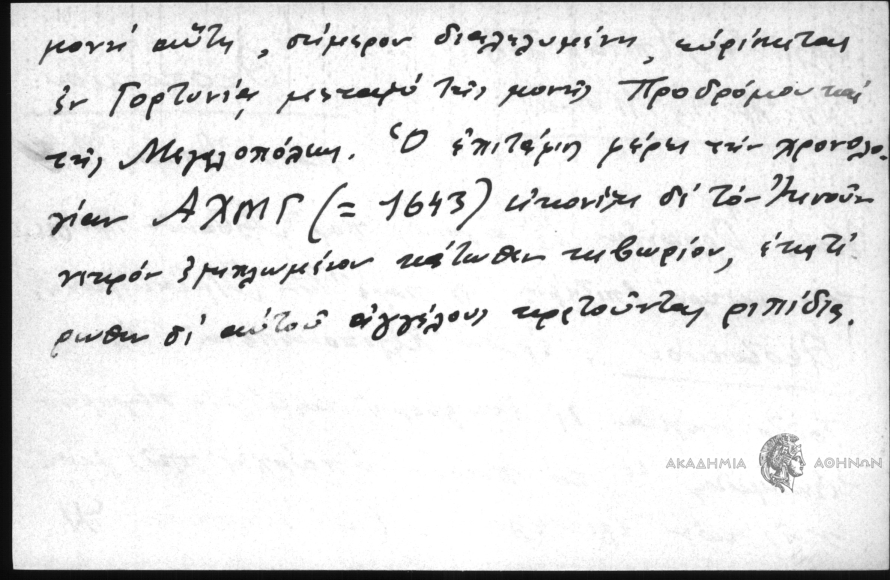 μονή αὕτη, σήμερον διαλελυμένη, εὑρίσκεται
ἐν Γορτυνίᾳ μεταξύ τῆς μονῆς Προδρόμου καί
τῆς Μεγαλοπόλεως. Ὁ ἐπιτάφιος φέρει τήν χρονολο-
γίαν ΑΧΜΓ (= 1643) εἰκονίζει δέ τόν Ἰησοῦν
νεκρόν ἐξηπλωμένον κάτωθεν κιβωρίου, ἑκατέ-
ρωθεν δέ αὐτοῦ ἀγγέλους κρατοῦντας ριπίδια.
ΑΚΑΔΗΜΙΑ ΑΘΗΝΩΝ